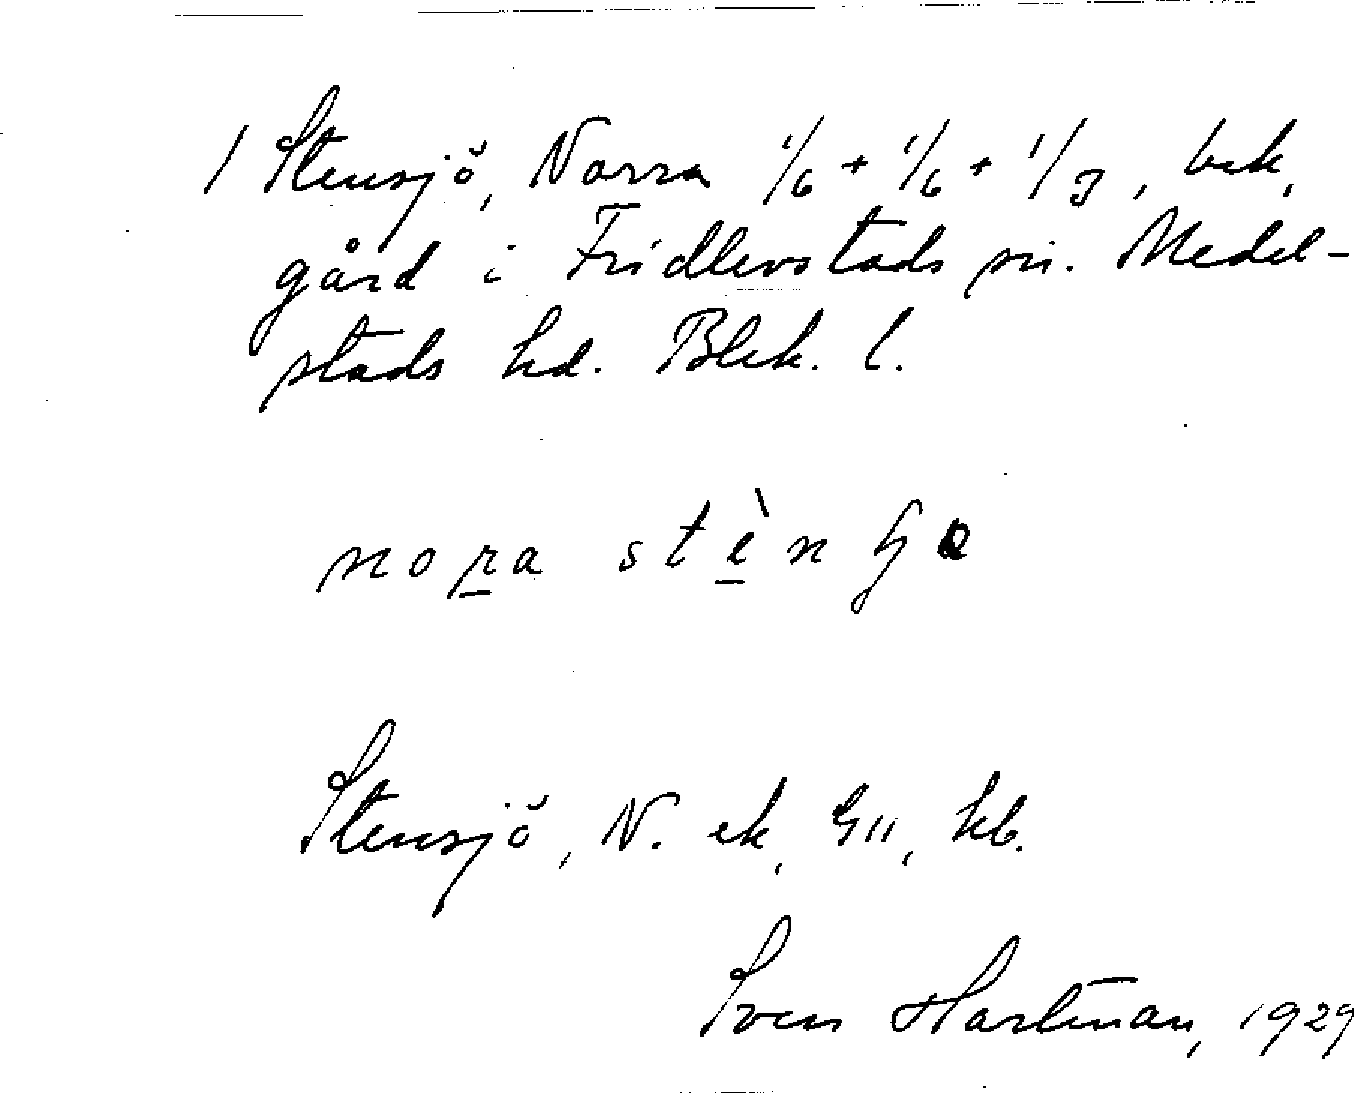 1 Stensjö, Norra 1/6 + 1/6 + 1/3, bek,
gård i Fridlevstads sn. Medel-
stads hd. Blek. l.
nora
Stensjö, N. ek, GII, kb.
Sven Hartman, 1929